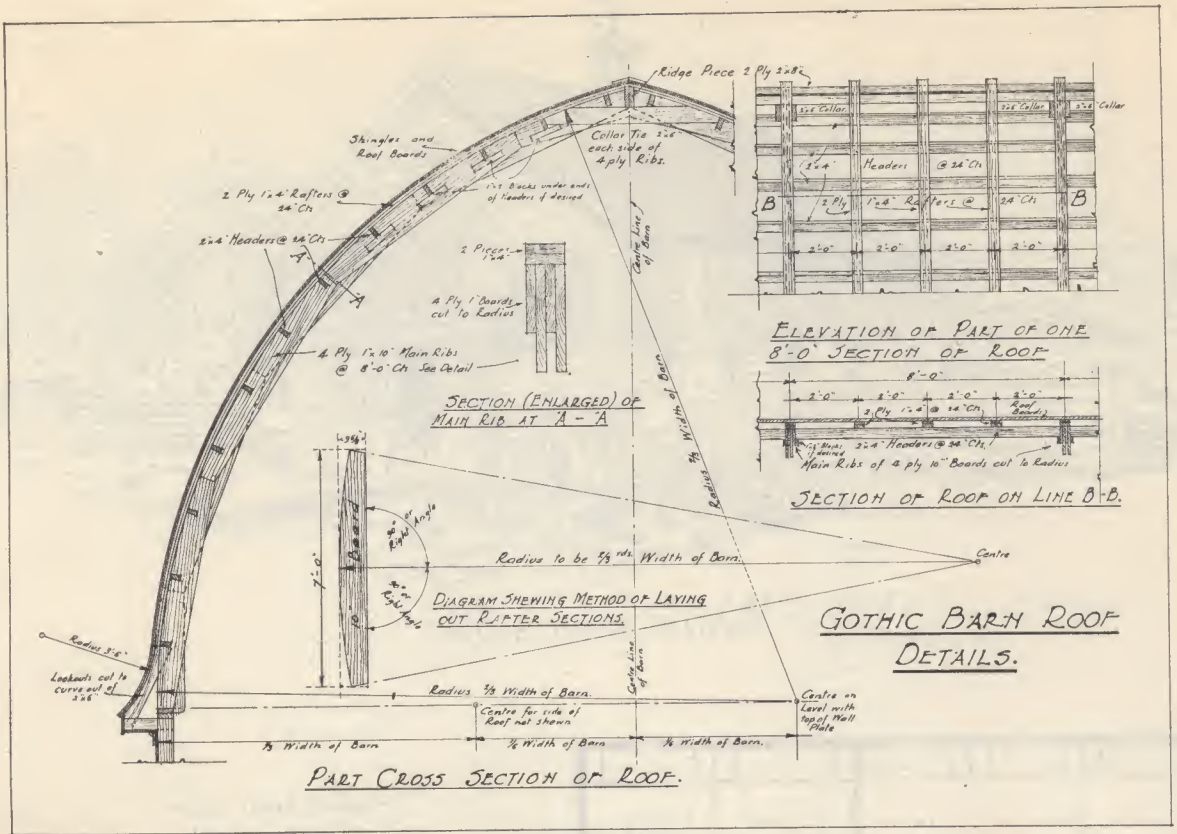 Ridge Piece 2 Ply 2"x8"
Shingles and
Roof Boards
Collar Tie 2"x6"
each side of
4 ply Ribs.
1"x2" Blocks under ends
of Headers if desired
2 Ply 1"x4" Rafters @
24" Ctrs
2"x4" Headers @ 24" Ctrs
A
A
4 Ply 1"x10" Main Ribs
@ 8'-0" Ctrs See Detail
Centre Line
of Barn
2 Pieces
1"x4"
4 Ply 1" Boards
cut to Radius
SECTION (ENLARGED) OF
MAIN RIB AT A - A
2"x6" Collar
2"x6" Collar
2"x6" Collar
2"x4" Headers @ 24" Ctrs
B
2 Ply 1"x4" Rafters @ 24" Ctrs
B
2'-0" 2'-0" 2'-0" 2'-0"
ELEVATION OF PART OF ONE
8'-0" SECTION OF ROOF
8'-0"
2'-0" 2'-0" 2'-0" 2'-0"
2 Ply 1"x4" @ 24" Ctrs
Roof
Boards
Blocks
if desired
2"x4" Headers @ 24" Ctrs.
Main Ribs of 4 ply 10" Boards cut to Radius
SECTION OF ROOF ON LINE B-B.
Radius 2/3 Width of Barn
7'-0"
10" Board
90° or
Right Angle
90° or
Right Angle
Radius to be 2/3 rds. Width of Barn.
Centre
DIAGRAM SHEWING METHOD OF LAYING
OUT RAFTER SECTIONS.
GOTHIC BARN ROOF
DETAILS.
Radius 3'-6"
Lookouts cut to
curve out of
2"x6"
Centre Line
of Barn
Radius 2/3 Width of Barn.
Centre for side of
Roof not shewn
Centre on
Level with
top of Wall
Plate
1/3 Width of Barn
1/6 Width of Barn
1/6 Width of Barn.
PART CROSS SECTION OF ROOF.